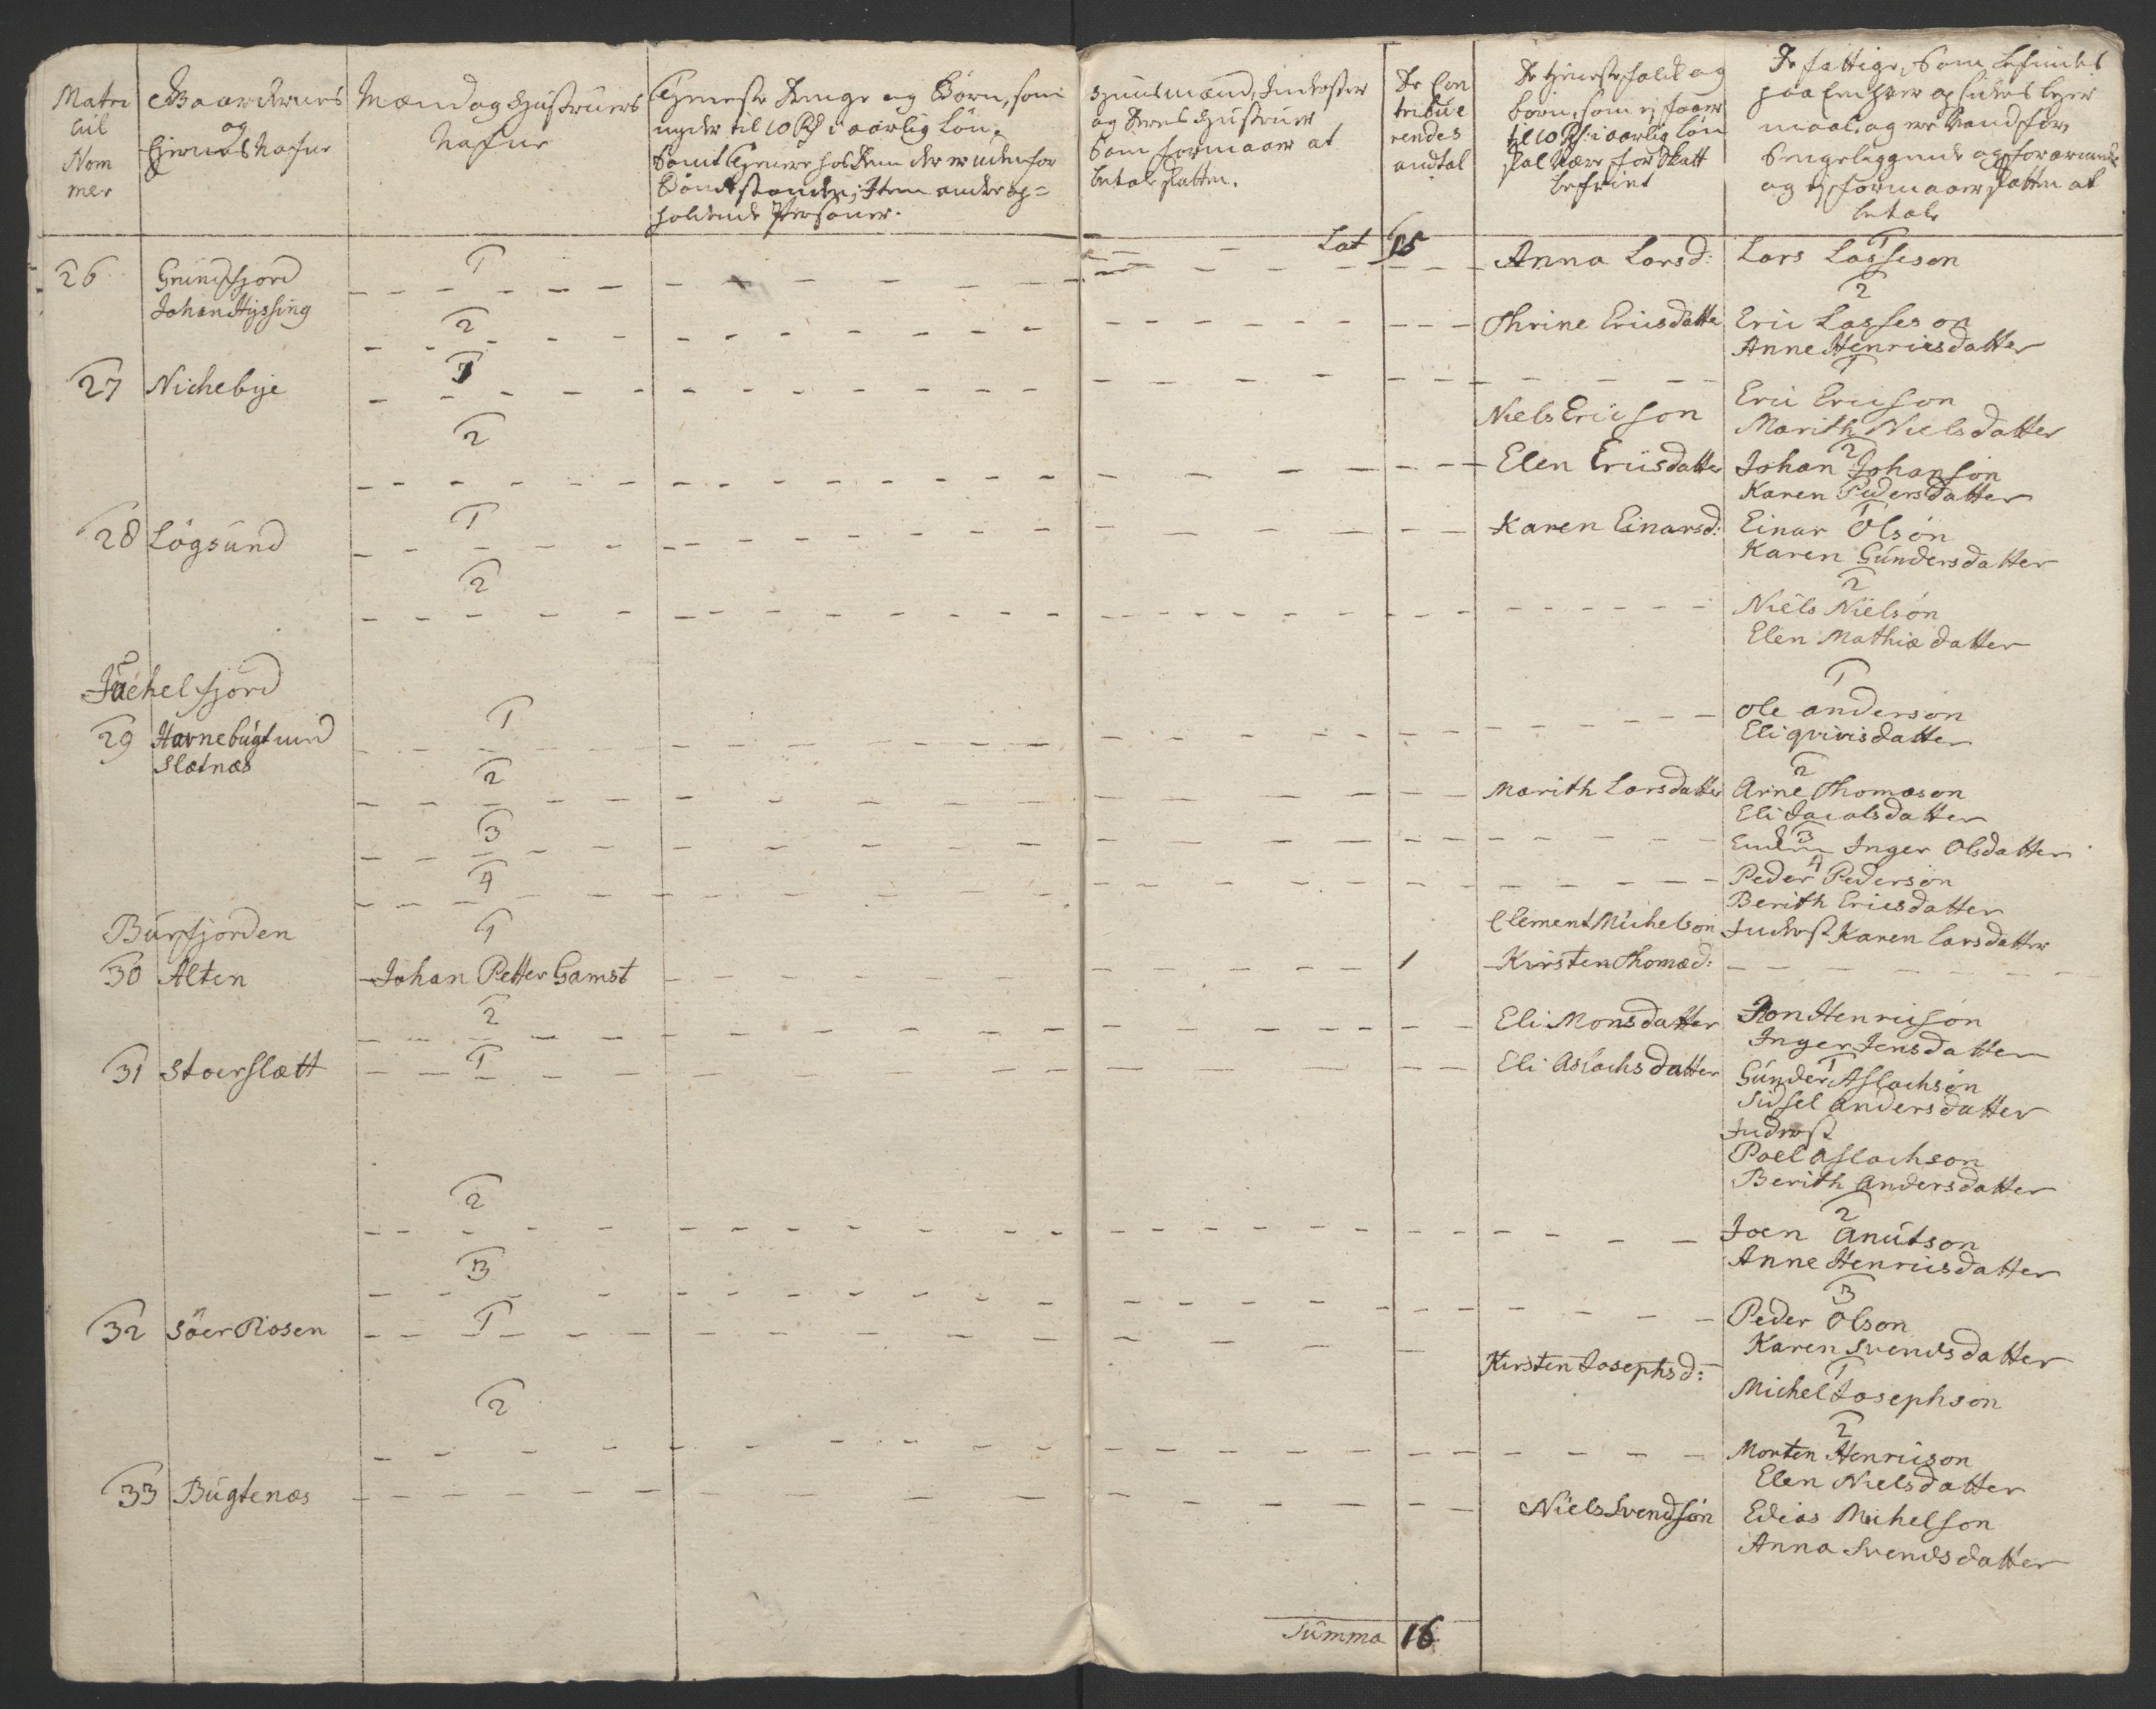 Matri
cul
Nom
mer
Gaardernes
og
Eiernes Nafne
Mænd og Hustruers
Nafne
Tieneste Drenge og Børn, som
nyder til 10 Rd i aarlig Løn,
Samt Tienere hos dem der er uden for
Bondestanden; Item andre op=
holdende Personer.
Huusmænd, Inderster
og Deres Hustruer
Som formaaer at
betale skatten.
De Con
tribue
rendes
andtal
De tienestefolk og
børn, som ej faaer
til 10 Rd: i aarlig Løn
skal være for Skatt
befriet
De fattige, Som befindes
paa Enhver
og ere Vandføre,
Sengeliggende og
og ej formaaer skatten at
betale
Lat 15
26 Grundfjord 1 Anna Larsd: 1 Lars Lasseson
Johan Hyssing 2 Thrine Ericsdatte 2 Eric Lasseson
Anne Henricsdatter
27 Nichebye 1 1 Eric Ericson
Niels Ericson Marith Nielsdatter
2 Elen Ericsdatter 2 Johan Johanson
Karen Pedersdatter
28 Løgsund 1 Karen Einarsd: 1 Einar Olsøn
Karen Gundersdatter
2 2 Niels Nielsøn
Elen Mathiædatter
Jøchelfjord
29 Havnebugt und 1 1 Ole anderson
Slætnæs Eli qvivisdatter
2 Marith Larsdatter 2 Arne Thomæson
Eli Jacobsdatter
3 3 Inger Olsdatter
4 4 Peder Pederson
Berith Ericsdatter
Burfjorden 1 Clement Michelson Inderst Karen Larsdatter
30 Alten Johan Petter Gamst 1 Kirsten Thomæd:
2 Eli Monsdatter Jon Henricson
Inger Jensdatter
31 Stoerslætt 1 Eli Aslachsdatter 1 Gunder Aslachsøn
Sidsel andersdatter
Inderst
Poel Aslachson
Berith Andersdatter
2 2 Joen Anutson
Anne Henricsdatter
3 3 Peder Olson
Karen Svendsdatter
32 Söer Rosen 1 Kirsten Josephsd: 1 Michel Josephson
2 2 Morten Henricson
Elen Nielsdatter
33 Bugtenæs Niels Svendsøn Edias Michelson
Anna Svendsdatter
Summa 16